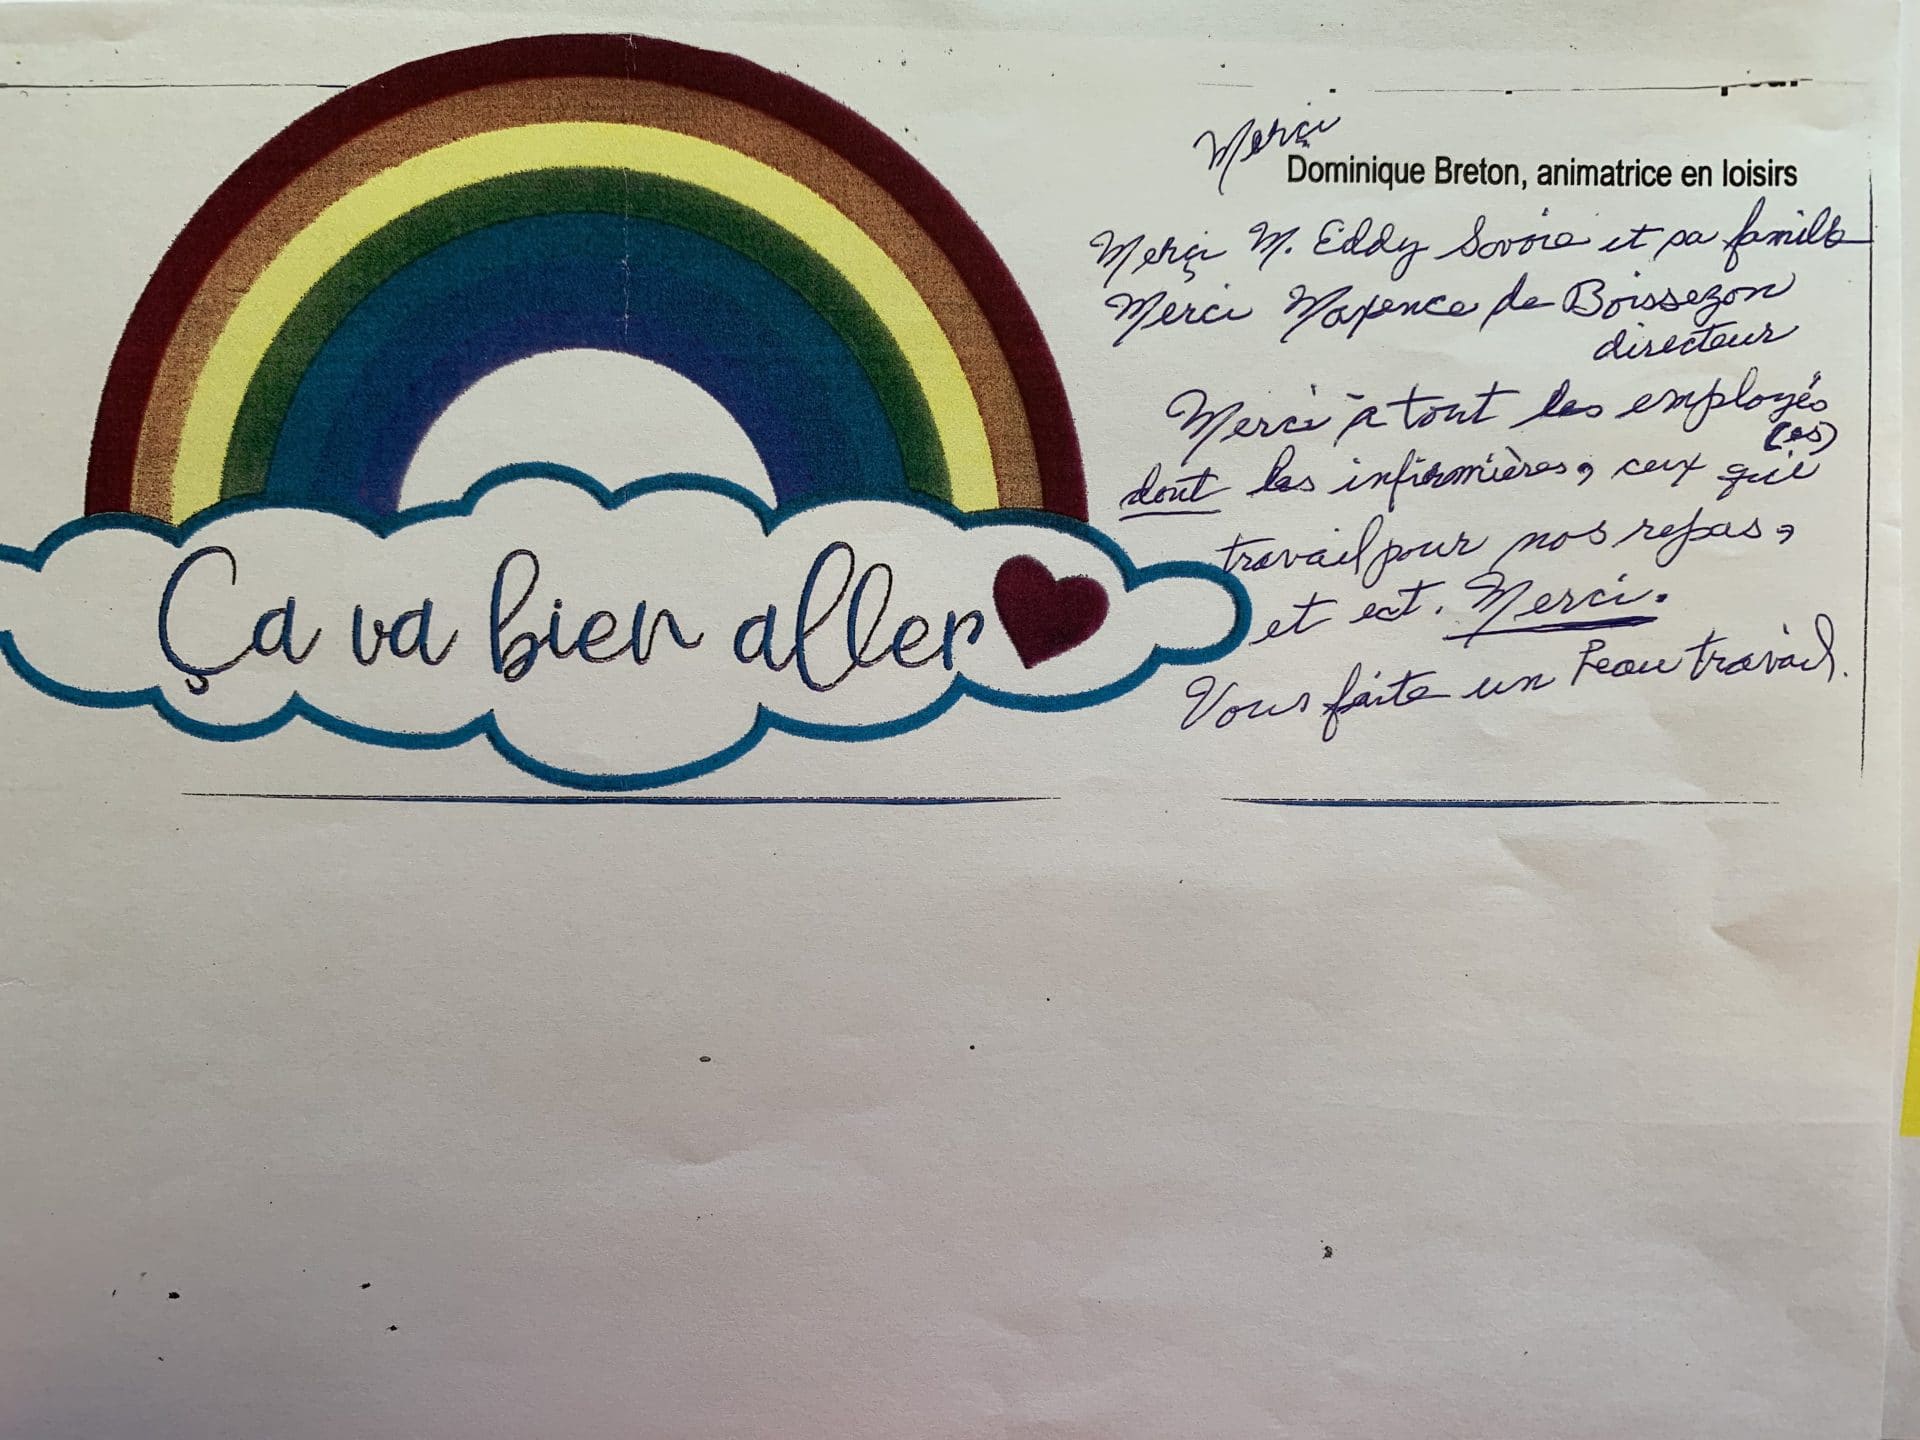 Ça va bien aller
Merçi
Dominique Breton, animatrice en loisirs
Merçi M. Eddy Savoie et sa famille
Merci Maxence de Boissezon
directeur
Merci à tout les employés
(es)
dont les infirmières, ceux qui
travail pour nos repas,
et ect. Merci.
Vous faite un beau travail.